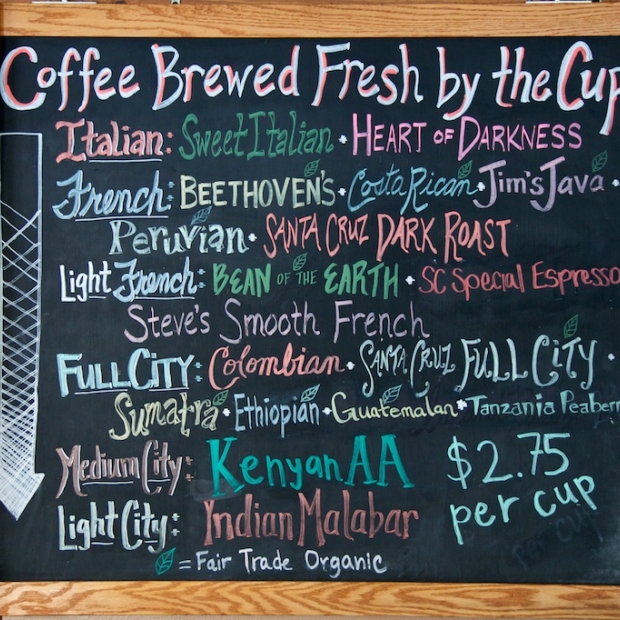 Coffee Brewed Fresh by the Cup
Italian: Sweet Italian • HEART OF DARKNESS
French: BEETHOVEN'S • Costa Rican • Jim's Java •
Peruvian • SANTA CRUZ DARK ROAST
Light French: BEAN OF THE EARTH • SC Special Espresso
Steve's Smooth French
FULL CITY: Colombian • SANTA CRUZ FULL CITY •
Sumatra • Ethiopian • Guatemalan • Tanzania Peaberr
Medium City: Kenyan AA
$2.75
per cup
Light City: Indian Malabar
= Fair Trade Organic